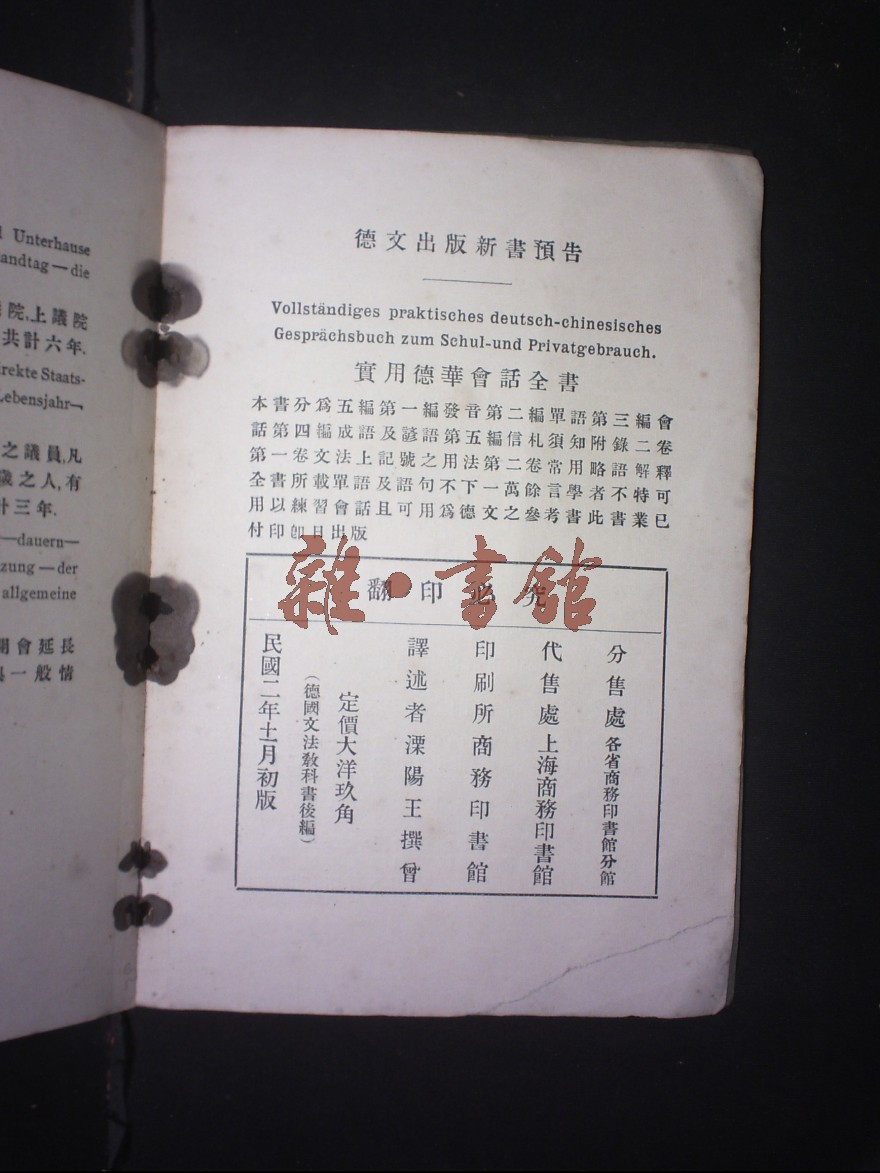 Unterhause
andtag—die
院,上議院
共計六年.
irekte Staats-
Lebensjahr—
之議員,凡
歲之人,有
計三年.
—dauern—
zung—der
allgemeine
會延長
一般情
德文出版新書預告
Vollständiges praktisches deutsch-chinesisches
Gesprächsbuch zum Schul-und Privatgebrauch.
實用德華會話全書
本書分爲五編第一編發音第二編單語第三編會
話第四編成語及諺語第五編信札須知附錄二卷
第一卷文法上記號之用法第二卷常用略語解釋
全書所載單語及語句不下一萬餘言學者不特可
用以練習會話且可用爲德文之參考書此書業已
付印卽日出版
雜·書館
翻印必究
分售處各省商務印書館分館
代售處上海商務印書館
印刷所商務印書館
譯述者溧陽王撰曾
定價大洋玖角
(德國文法敎科書後編)
民國二年十一月初版